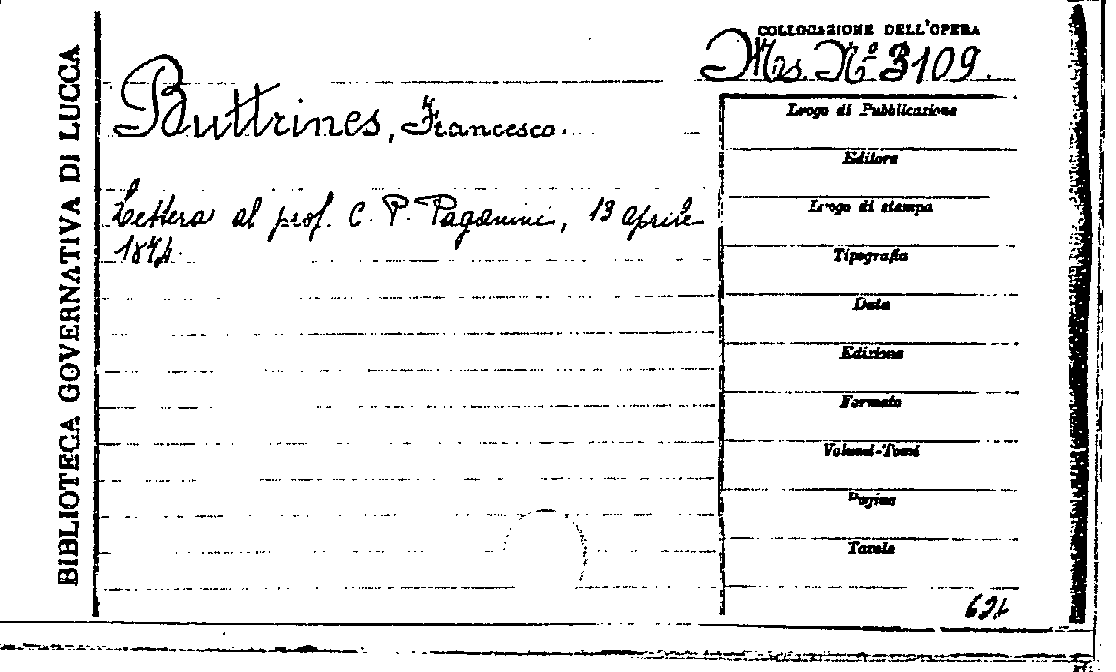 BIBLIOTECA GOVERNATIVA DI LUCCA
COLLOCAZIONE DELL'OPERA
Ms. Nº 3109.
Buttrines, Francesco.
Lettera al prof. C. P. Paganini, 13 aprile
1874.
Luogo di Pubblicazione
Editore
Luogo di stampa
Tipografia
Data
Edizione
Formato
Volumi-Tomi
Pagine
Tavole